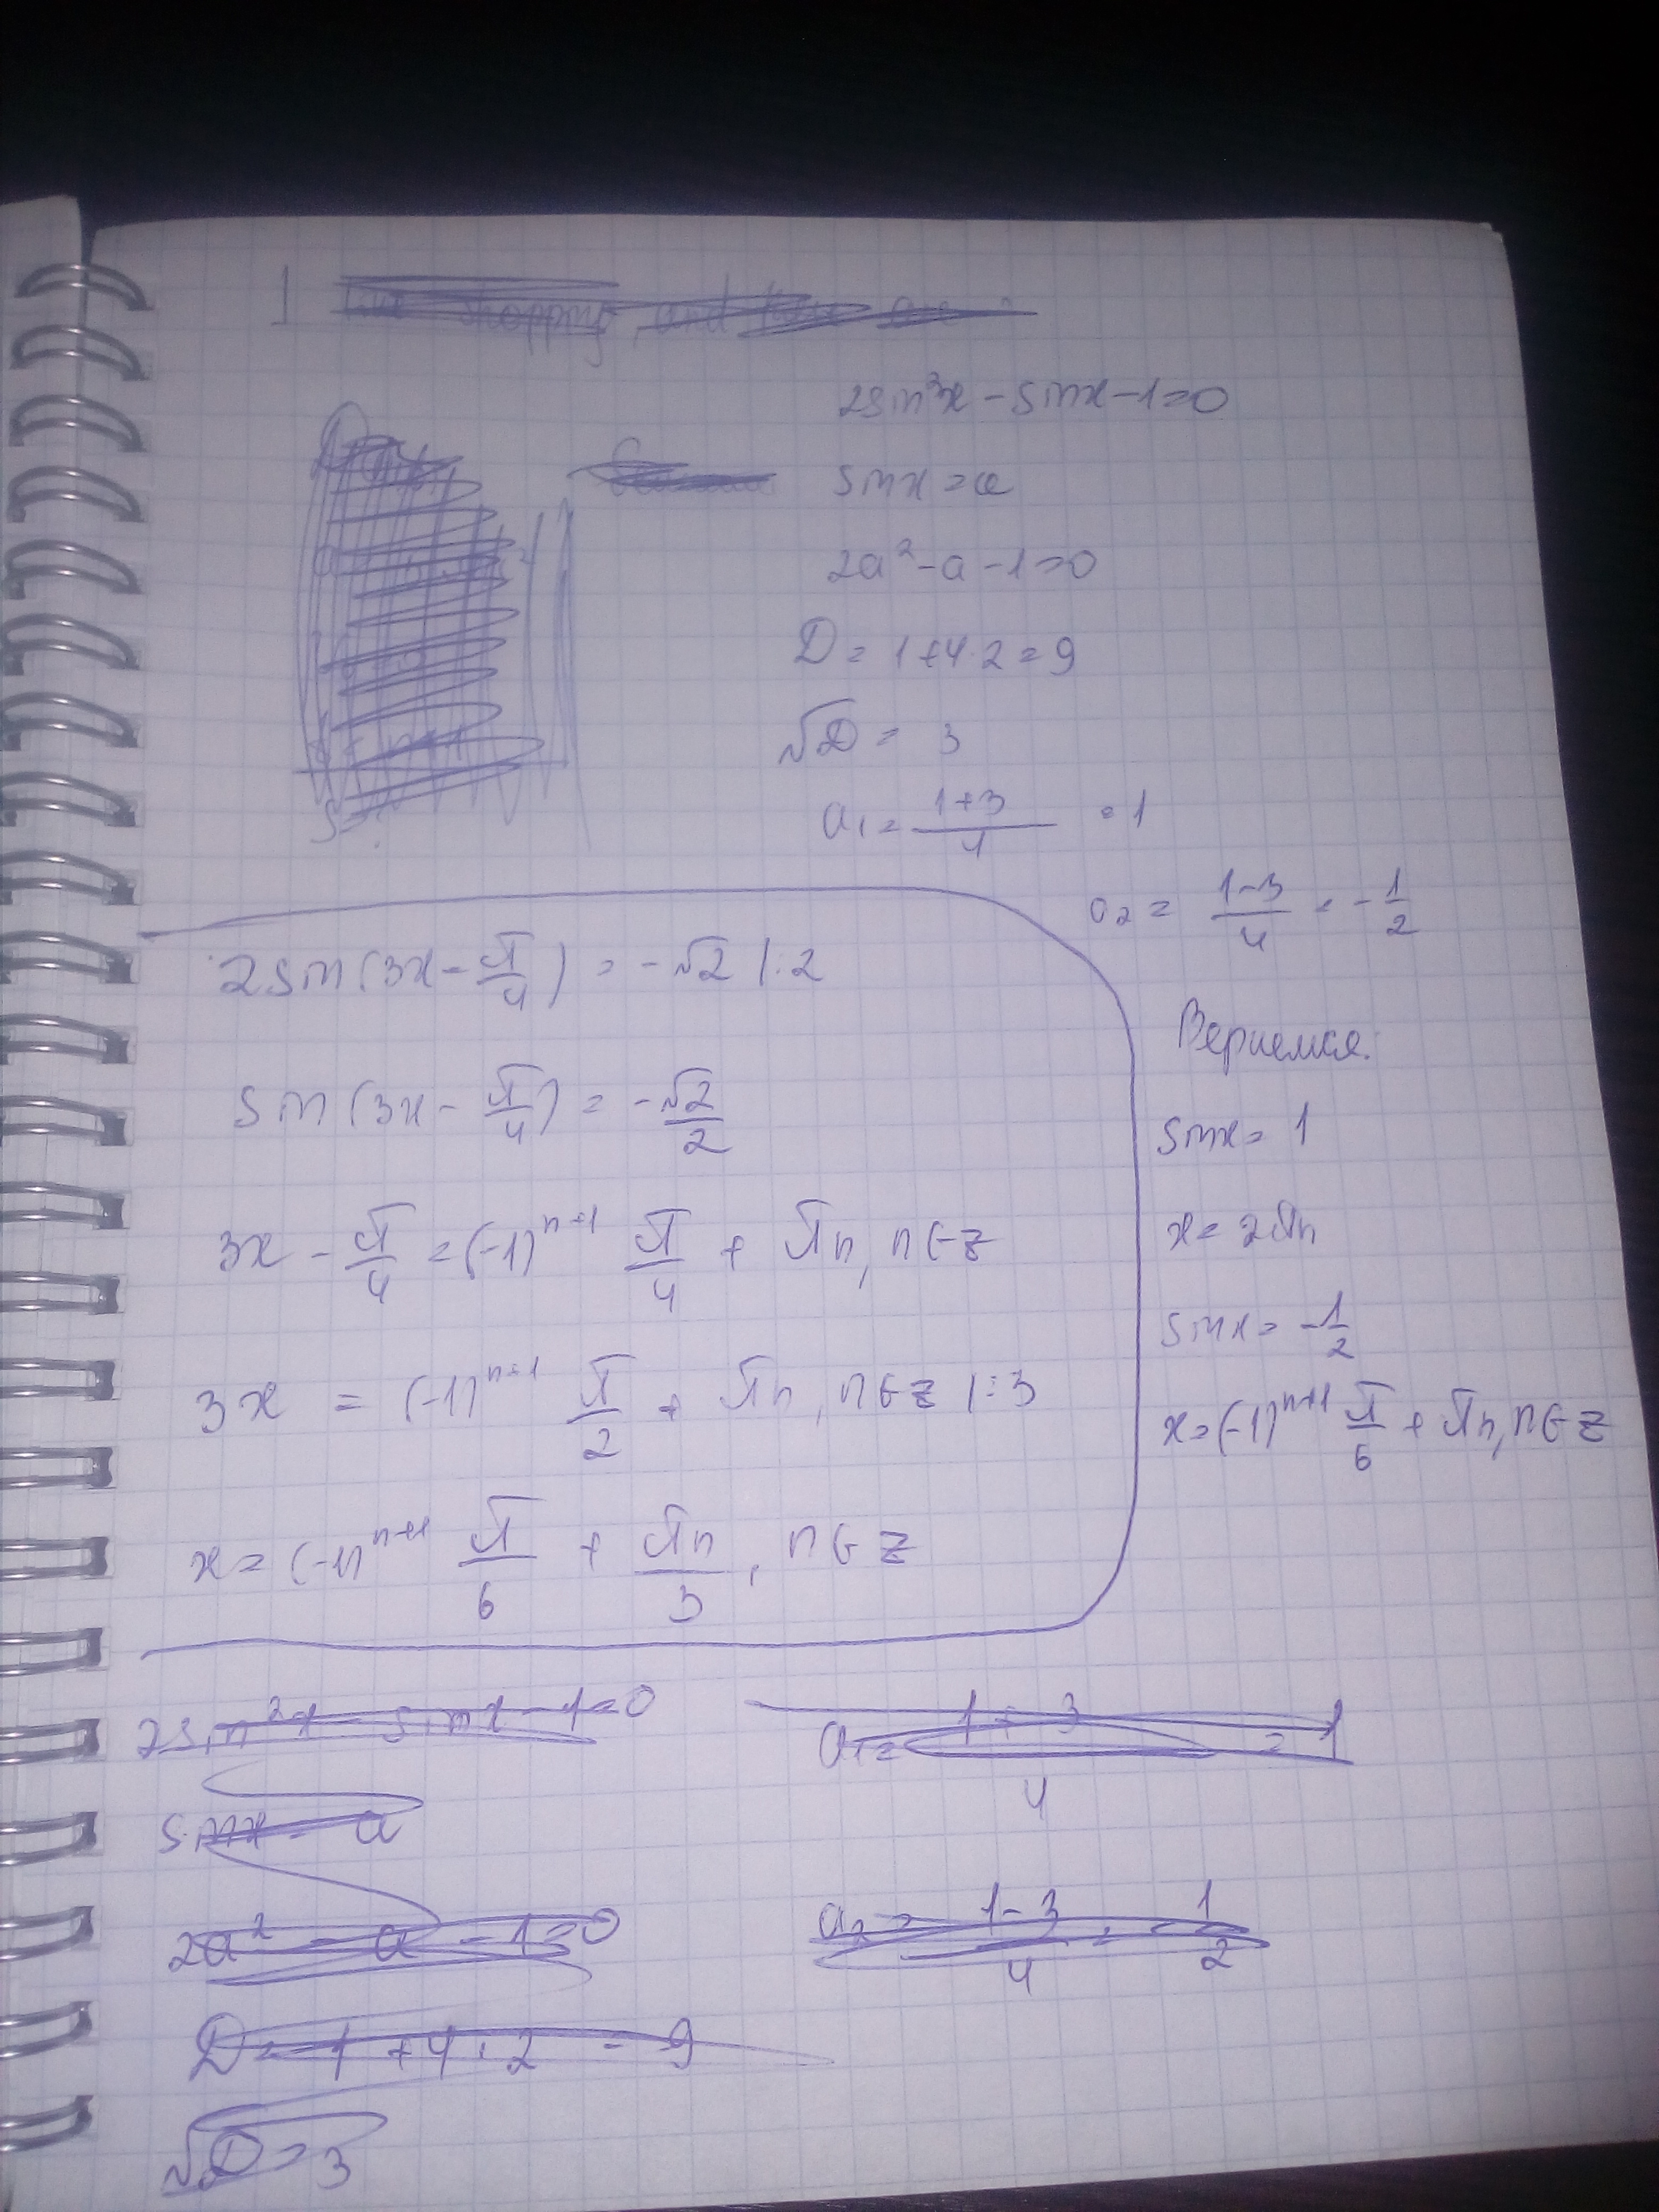 1
shopping and
2sin²x - sinx - 1 = 0
sinx = a
2a² - a - 1 = 0
D = 1 + 4·2 = 9
√D = 3
a₁ = (1+3)/4 = 1
a₂ = (1-3)/4 = -1/2
Вернемся:
sinx = 1
x = 2πn
sinx = -1/2
x = (-1)ⁿ⁺¹ π/6 + πn, n∈Z
2sin(3x - π/4) = -√2 |:2
sin(3x - π/4) = -√2/2
3x - π/4 = (-1)ⁿ⁺¹ π/4 + πn, n∈Z
3x = (-1)ⁿ⁺¹ π/2 + πn, n∈Z |:3
x = (-1)ⁿ⁺¹ π/6 + πn/3, n∈Z
2sin²x - sinx - 1 = 0
sinx = a
2a² - a - 1 = 0
D = 1 + 4·2 = 9
√D = 3
a₁ = (1+3)/4 = 1
a₂ = (1-3)/4 = -1/2